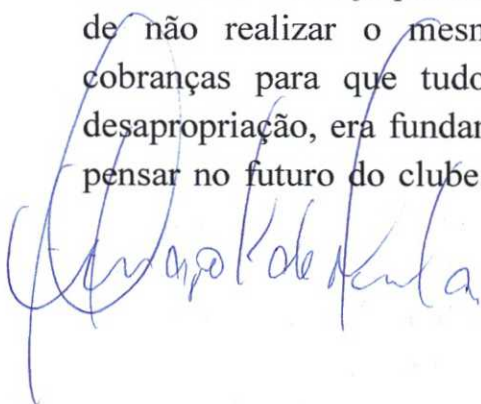 de não realizar o mesm
cobranças para que tudo
desapropriação, era fundar
pensar no futuro do clube
de